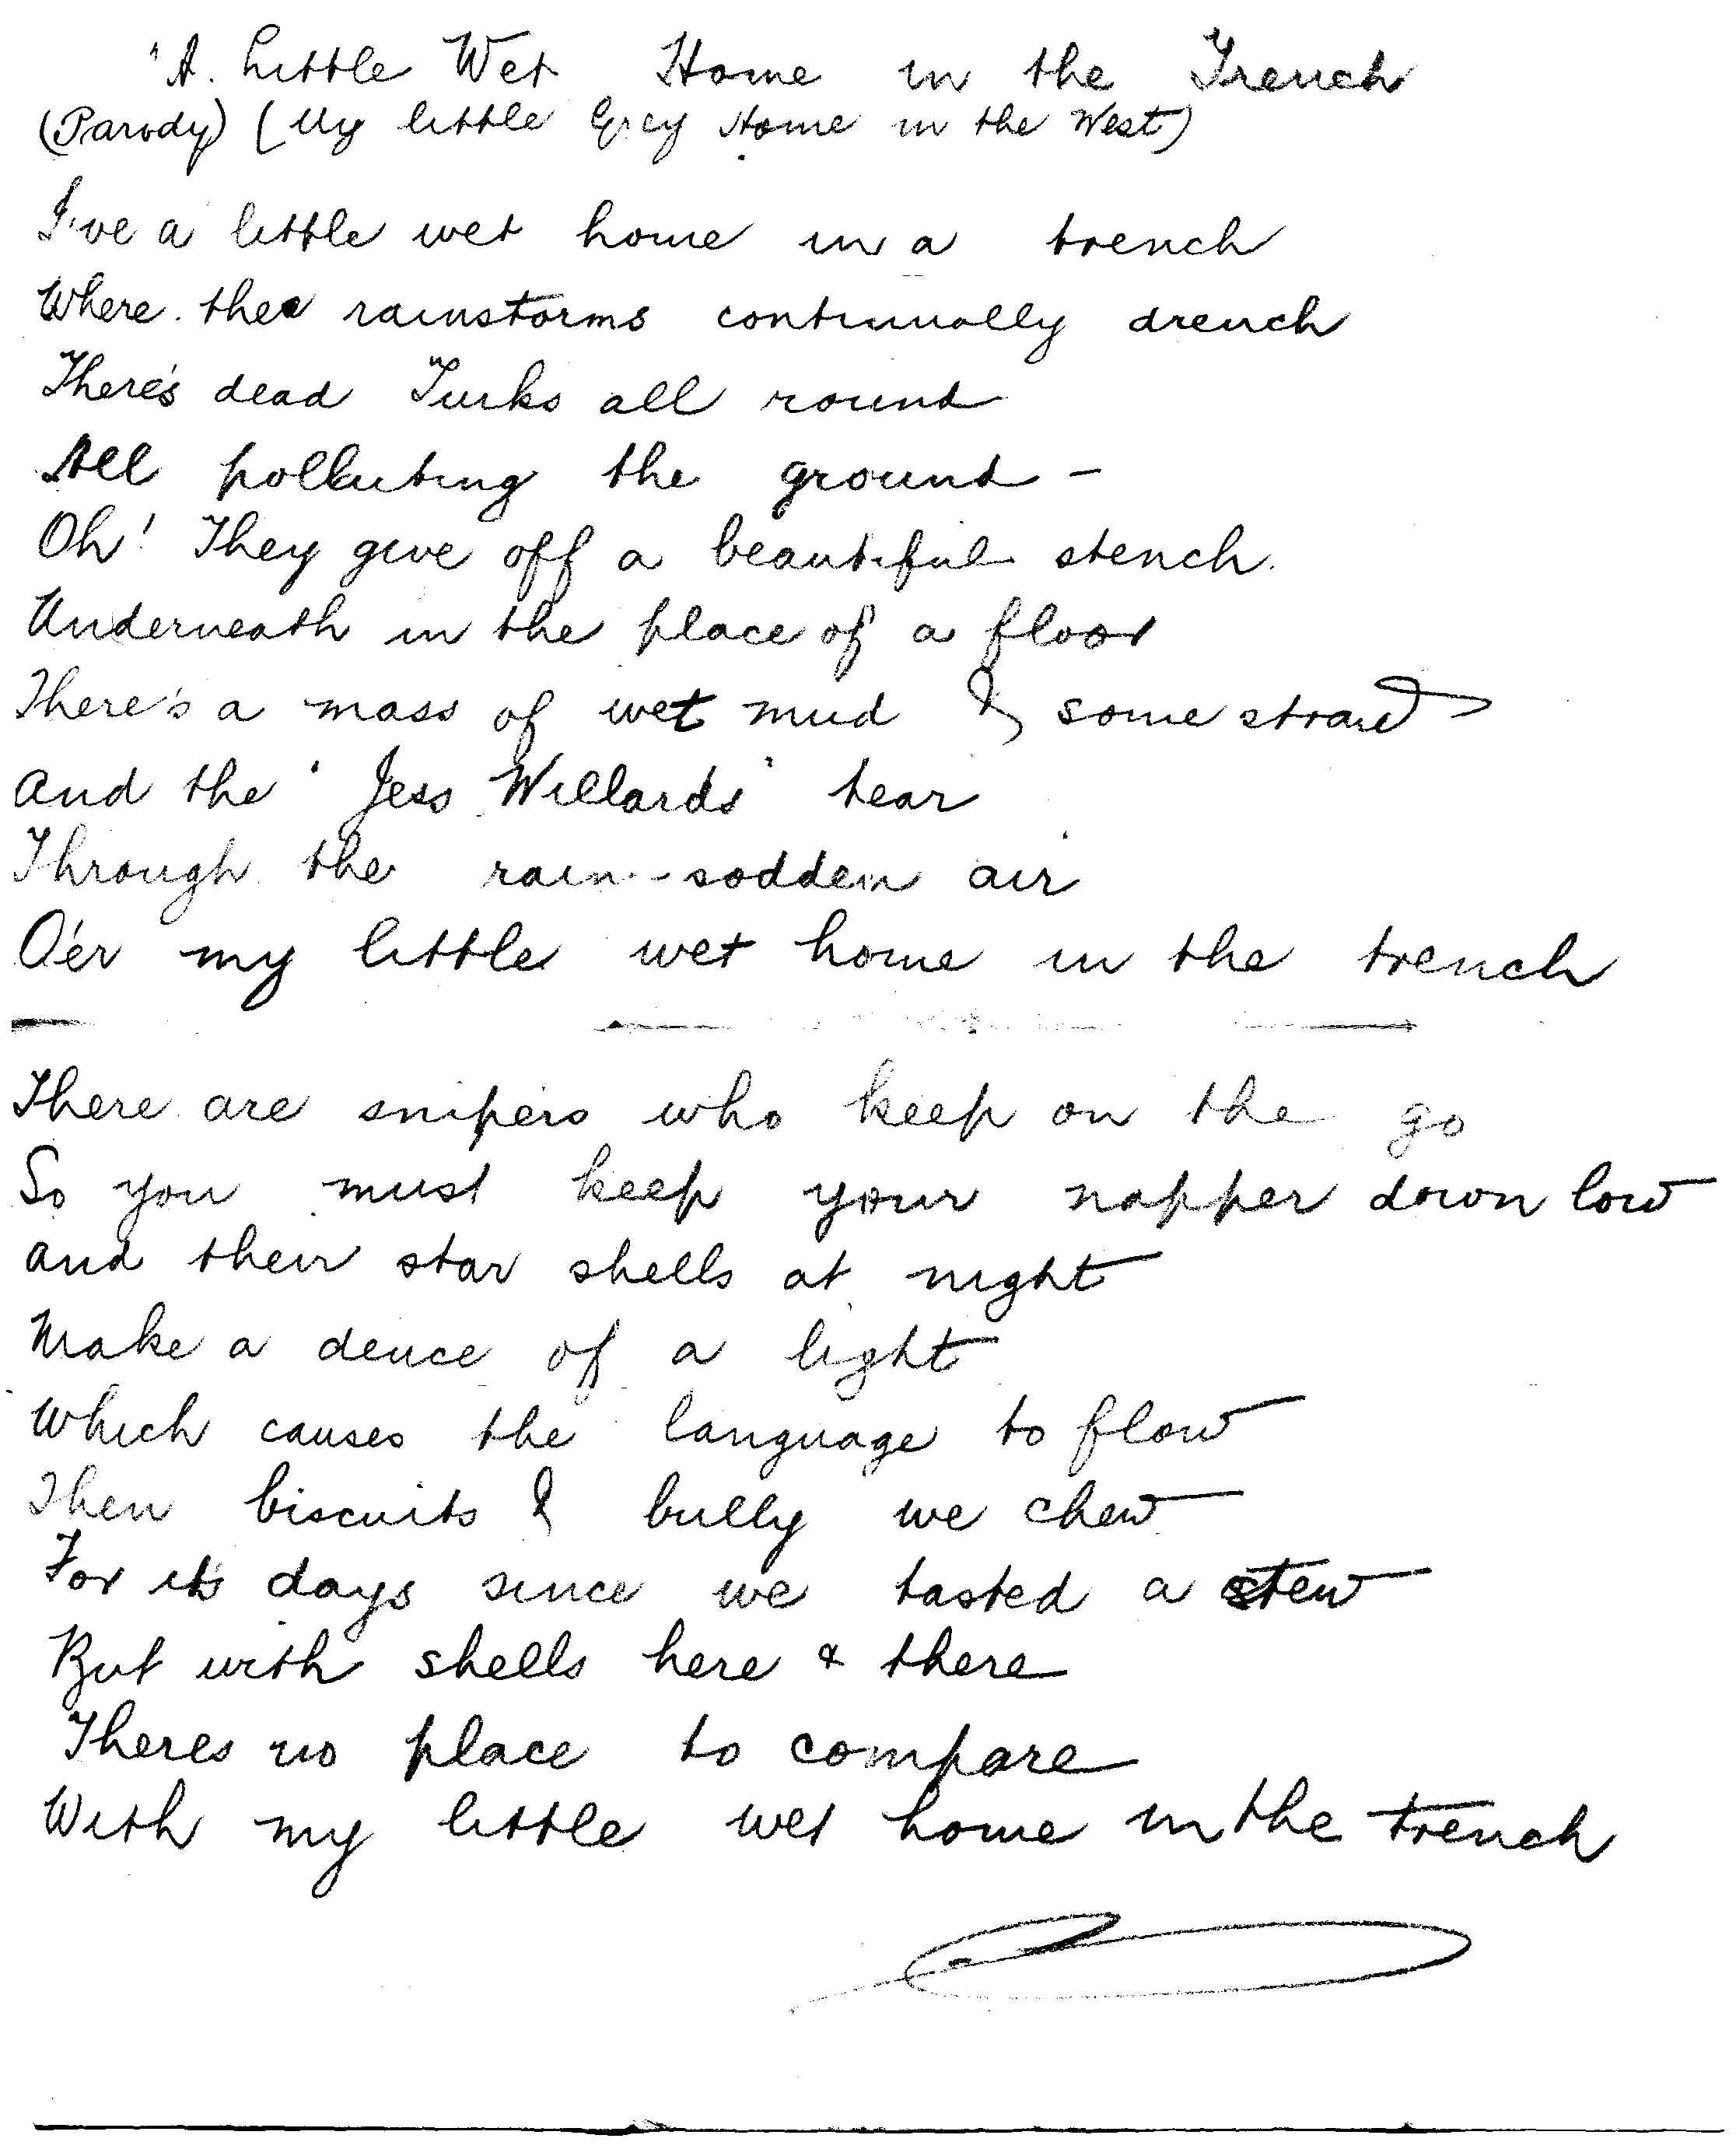 'A Little Wet Home in the Trench
(Parody) (My little Grey Home in the West)
I've a little wet home in a trench
Where the rainstorms continually drench
There's dead Turks all round
All polluting the ground –
Oh! They give off a beautiful stench.
Underneath in the place of a floor
There's a mass of wet mud & some straw
And the 'Jess Willards' tear
Through the rain-sodden air
O'er my little wet home in the trench
There are snipers who keep on the go
So you must keep your napper down low
And their star shells at night
Make a deuce of a light
Which causes the language to flow
Then biscuits & bully we chew
For it's days since we tasted a stew
But with shells here & there
Theres no place to compare
With my little wet home in the trench